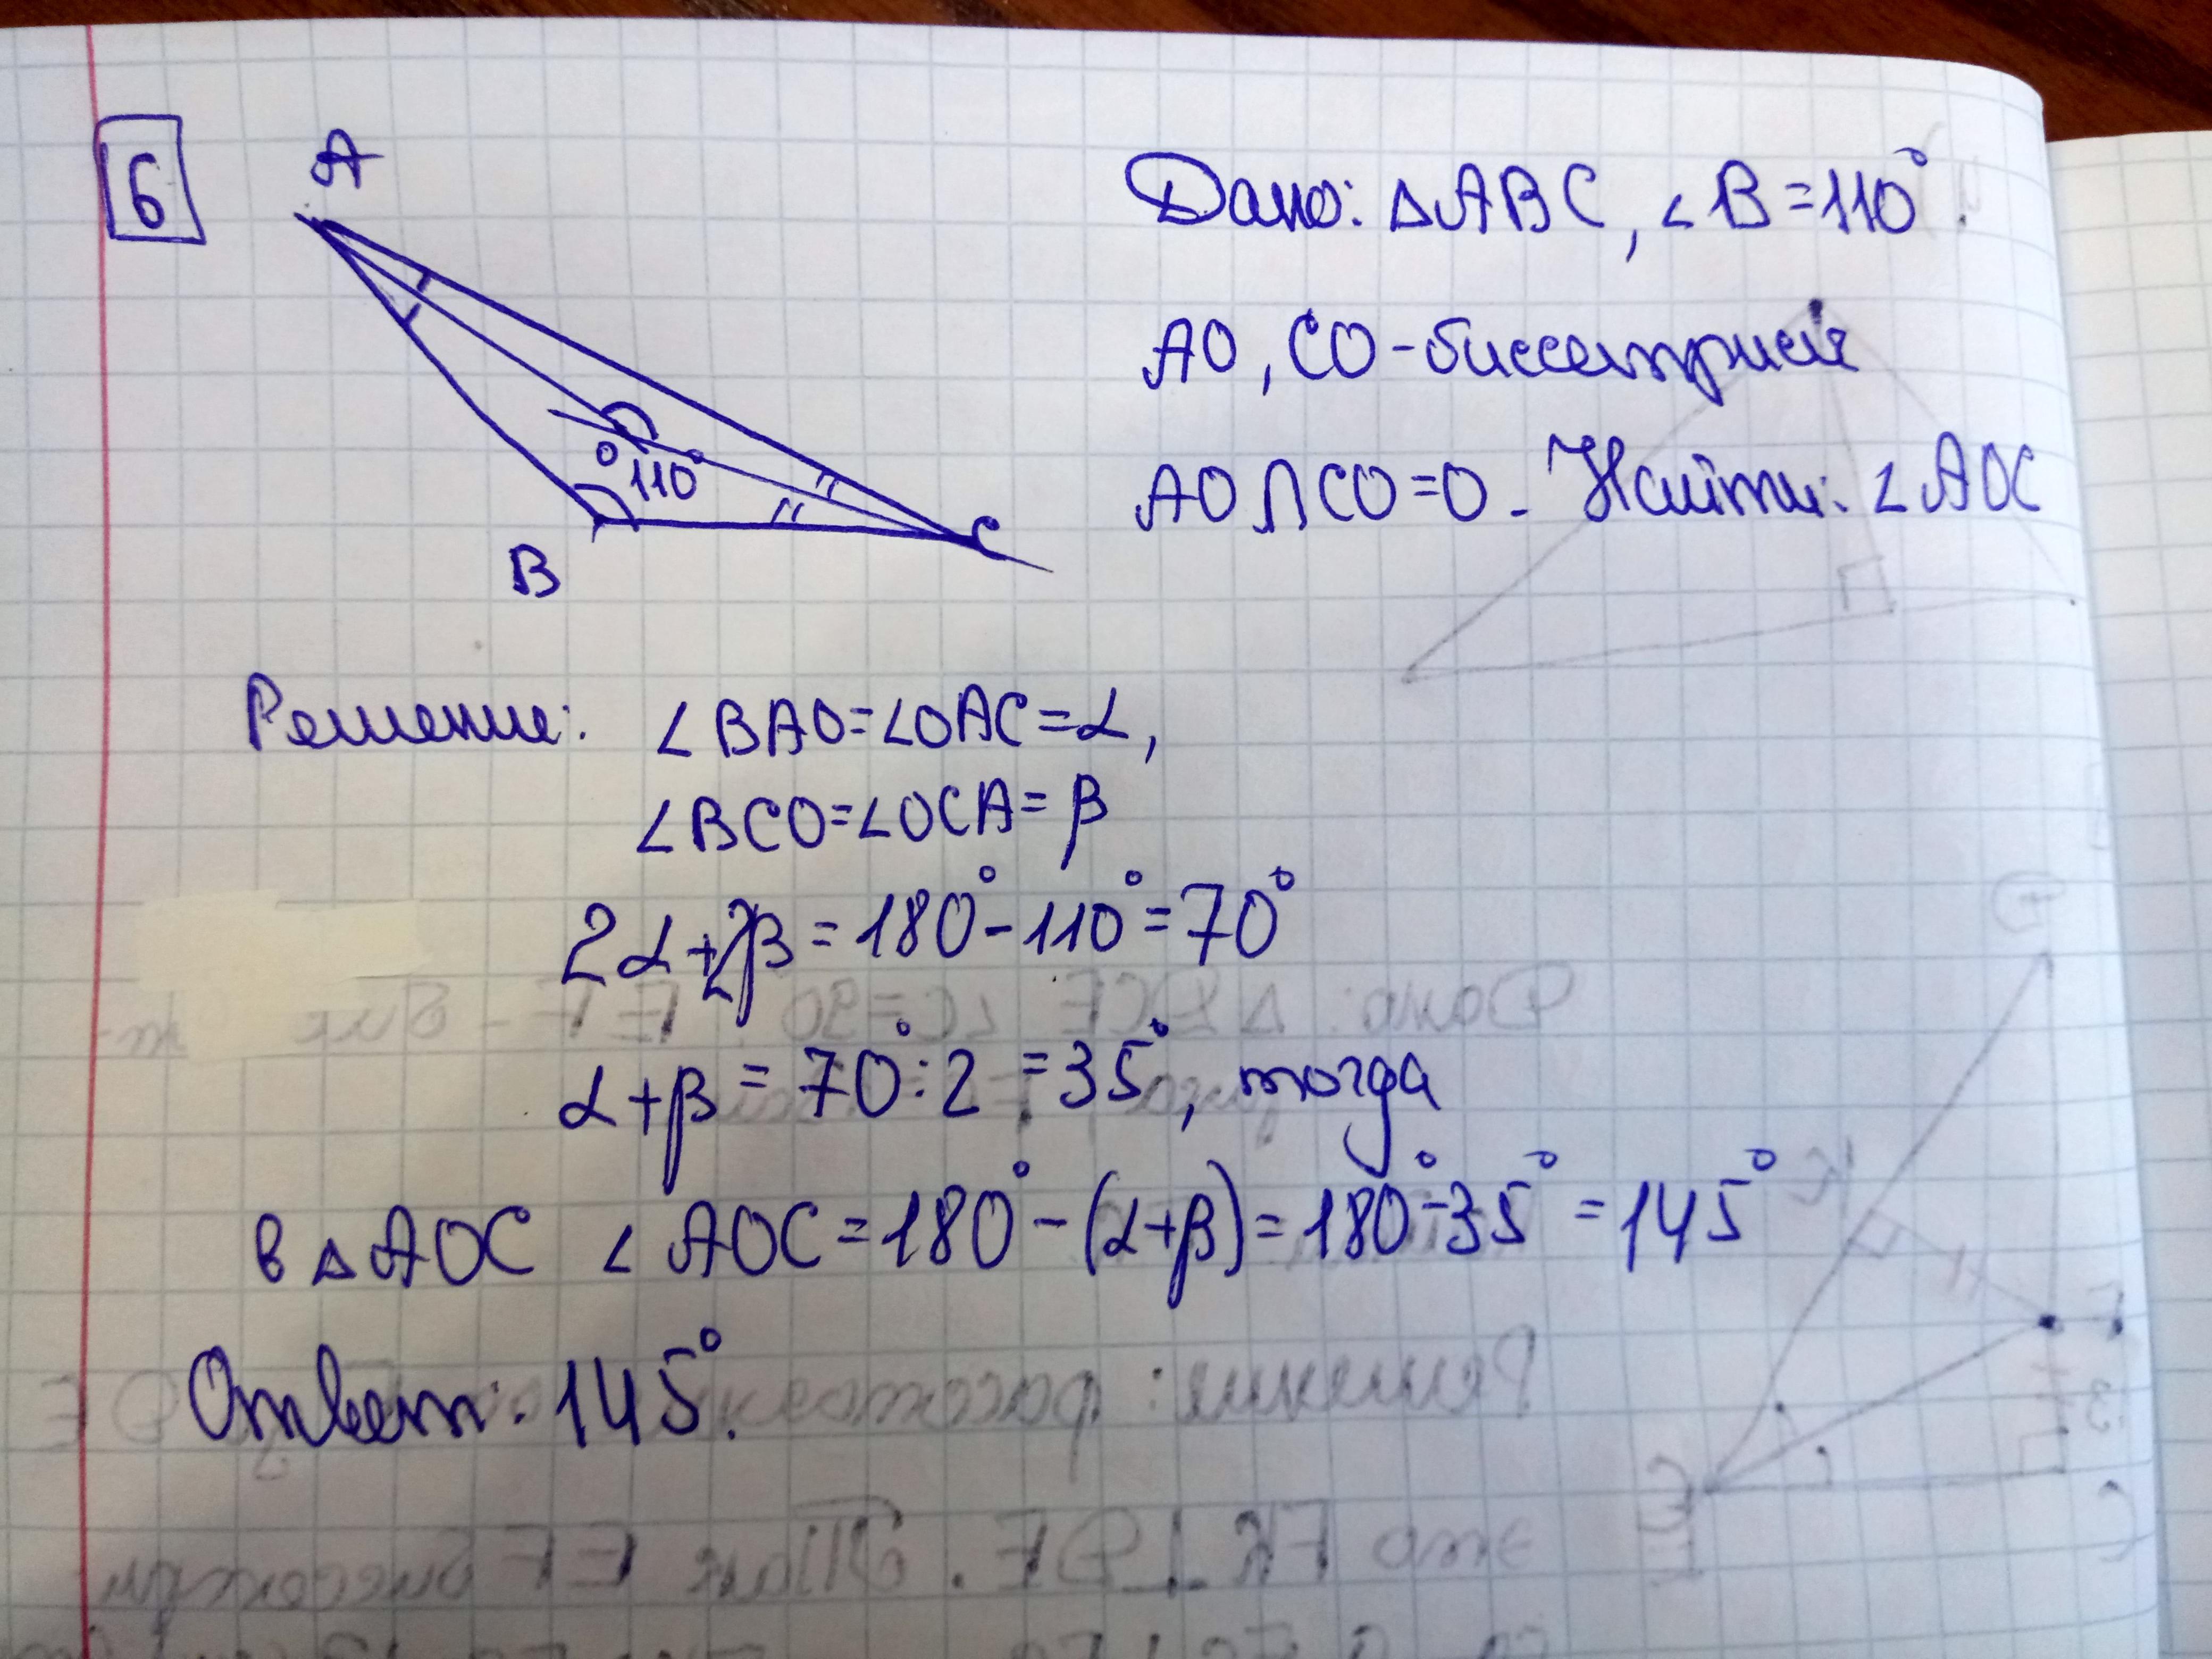 6
A
Дано: △ABC, ∠B=110°.
AO, CO-биссектрисы
AO∩CO=O. Найти: ∠AOC
O 110°
B
C
Решение: ∠BAO=∠OAC=α,
∠BCO=∠OCA=β
2α+2β=180°-110°=70°
α+β=70°:2=35°, тогда
в △AOC ∠AOC=180°-(α+β)=180°-35°=145°
Ответ: 145°.